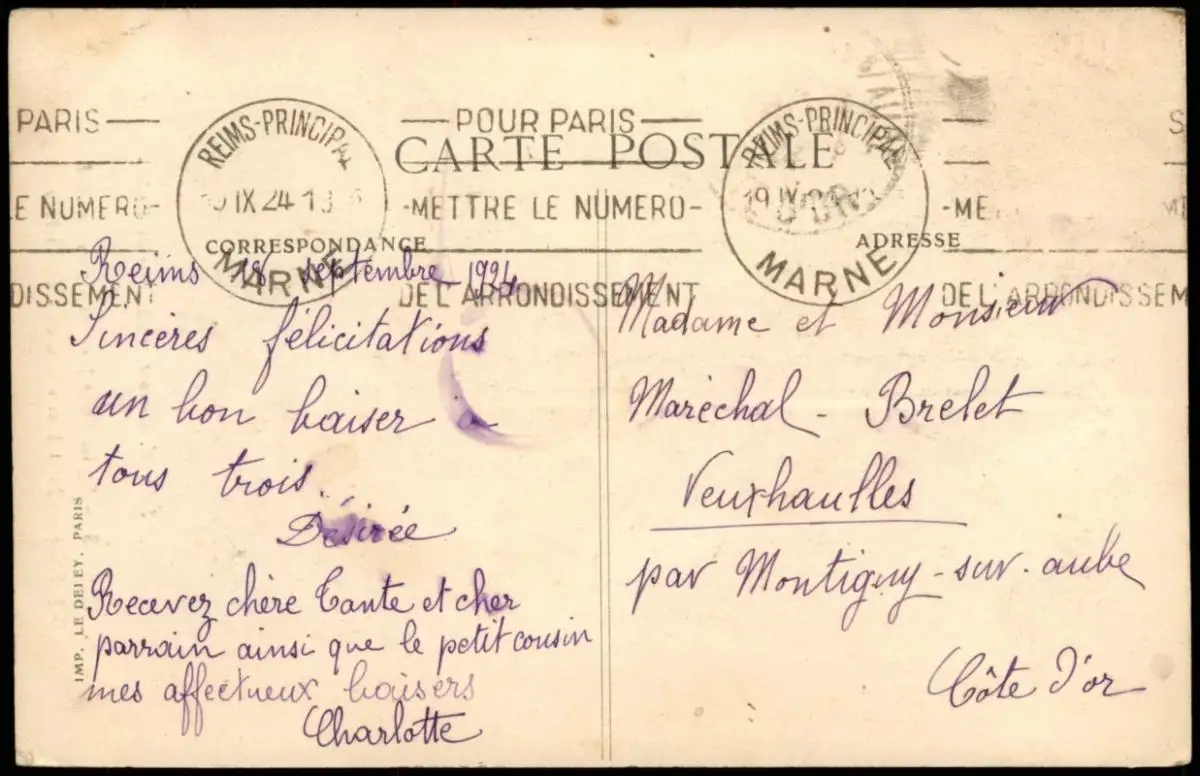 PARIS
POUR PARIS
S
REIMS-PRINCIPAL
REIMS-PRINCIPAL
CARTE POSTALE
E NUMERO-
IX 24
-METTRE LE NUMERO-
19 IX
-ME
CORRESPONDANCE
ADRESSE
MARNE
MARNE
DISSEMENT
DE L'ARRONDISSEMENT
DE L'ARRONDISSEM
Reims 18 septembre 1924
Sincères félicitations
un bon baiser a
tous trois.
Désirée
Recevez chère Tante et cher
parrain ainsi que le petit cousin
mes affectueux baisers
Charlotte
Madame et Monsieur
Maréchal - Brelet
Veuxhaulles
par Montigny-sur-aube
Côte d'or
IMP. LE DELEY, PARIS